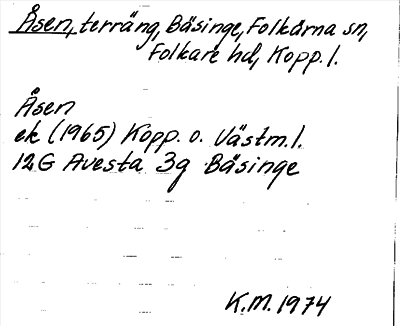 Åsen, terräng, Bäsinge, Folkärna sn,
Folkare hd, Kopp. l.
Åsen
ek (1965) Kopp. o. Västm. l.
12G Avesta 3g Bäsinge
K.M. 1974